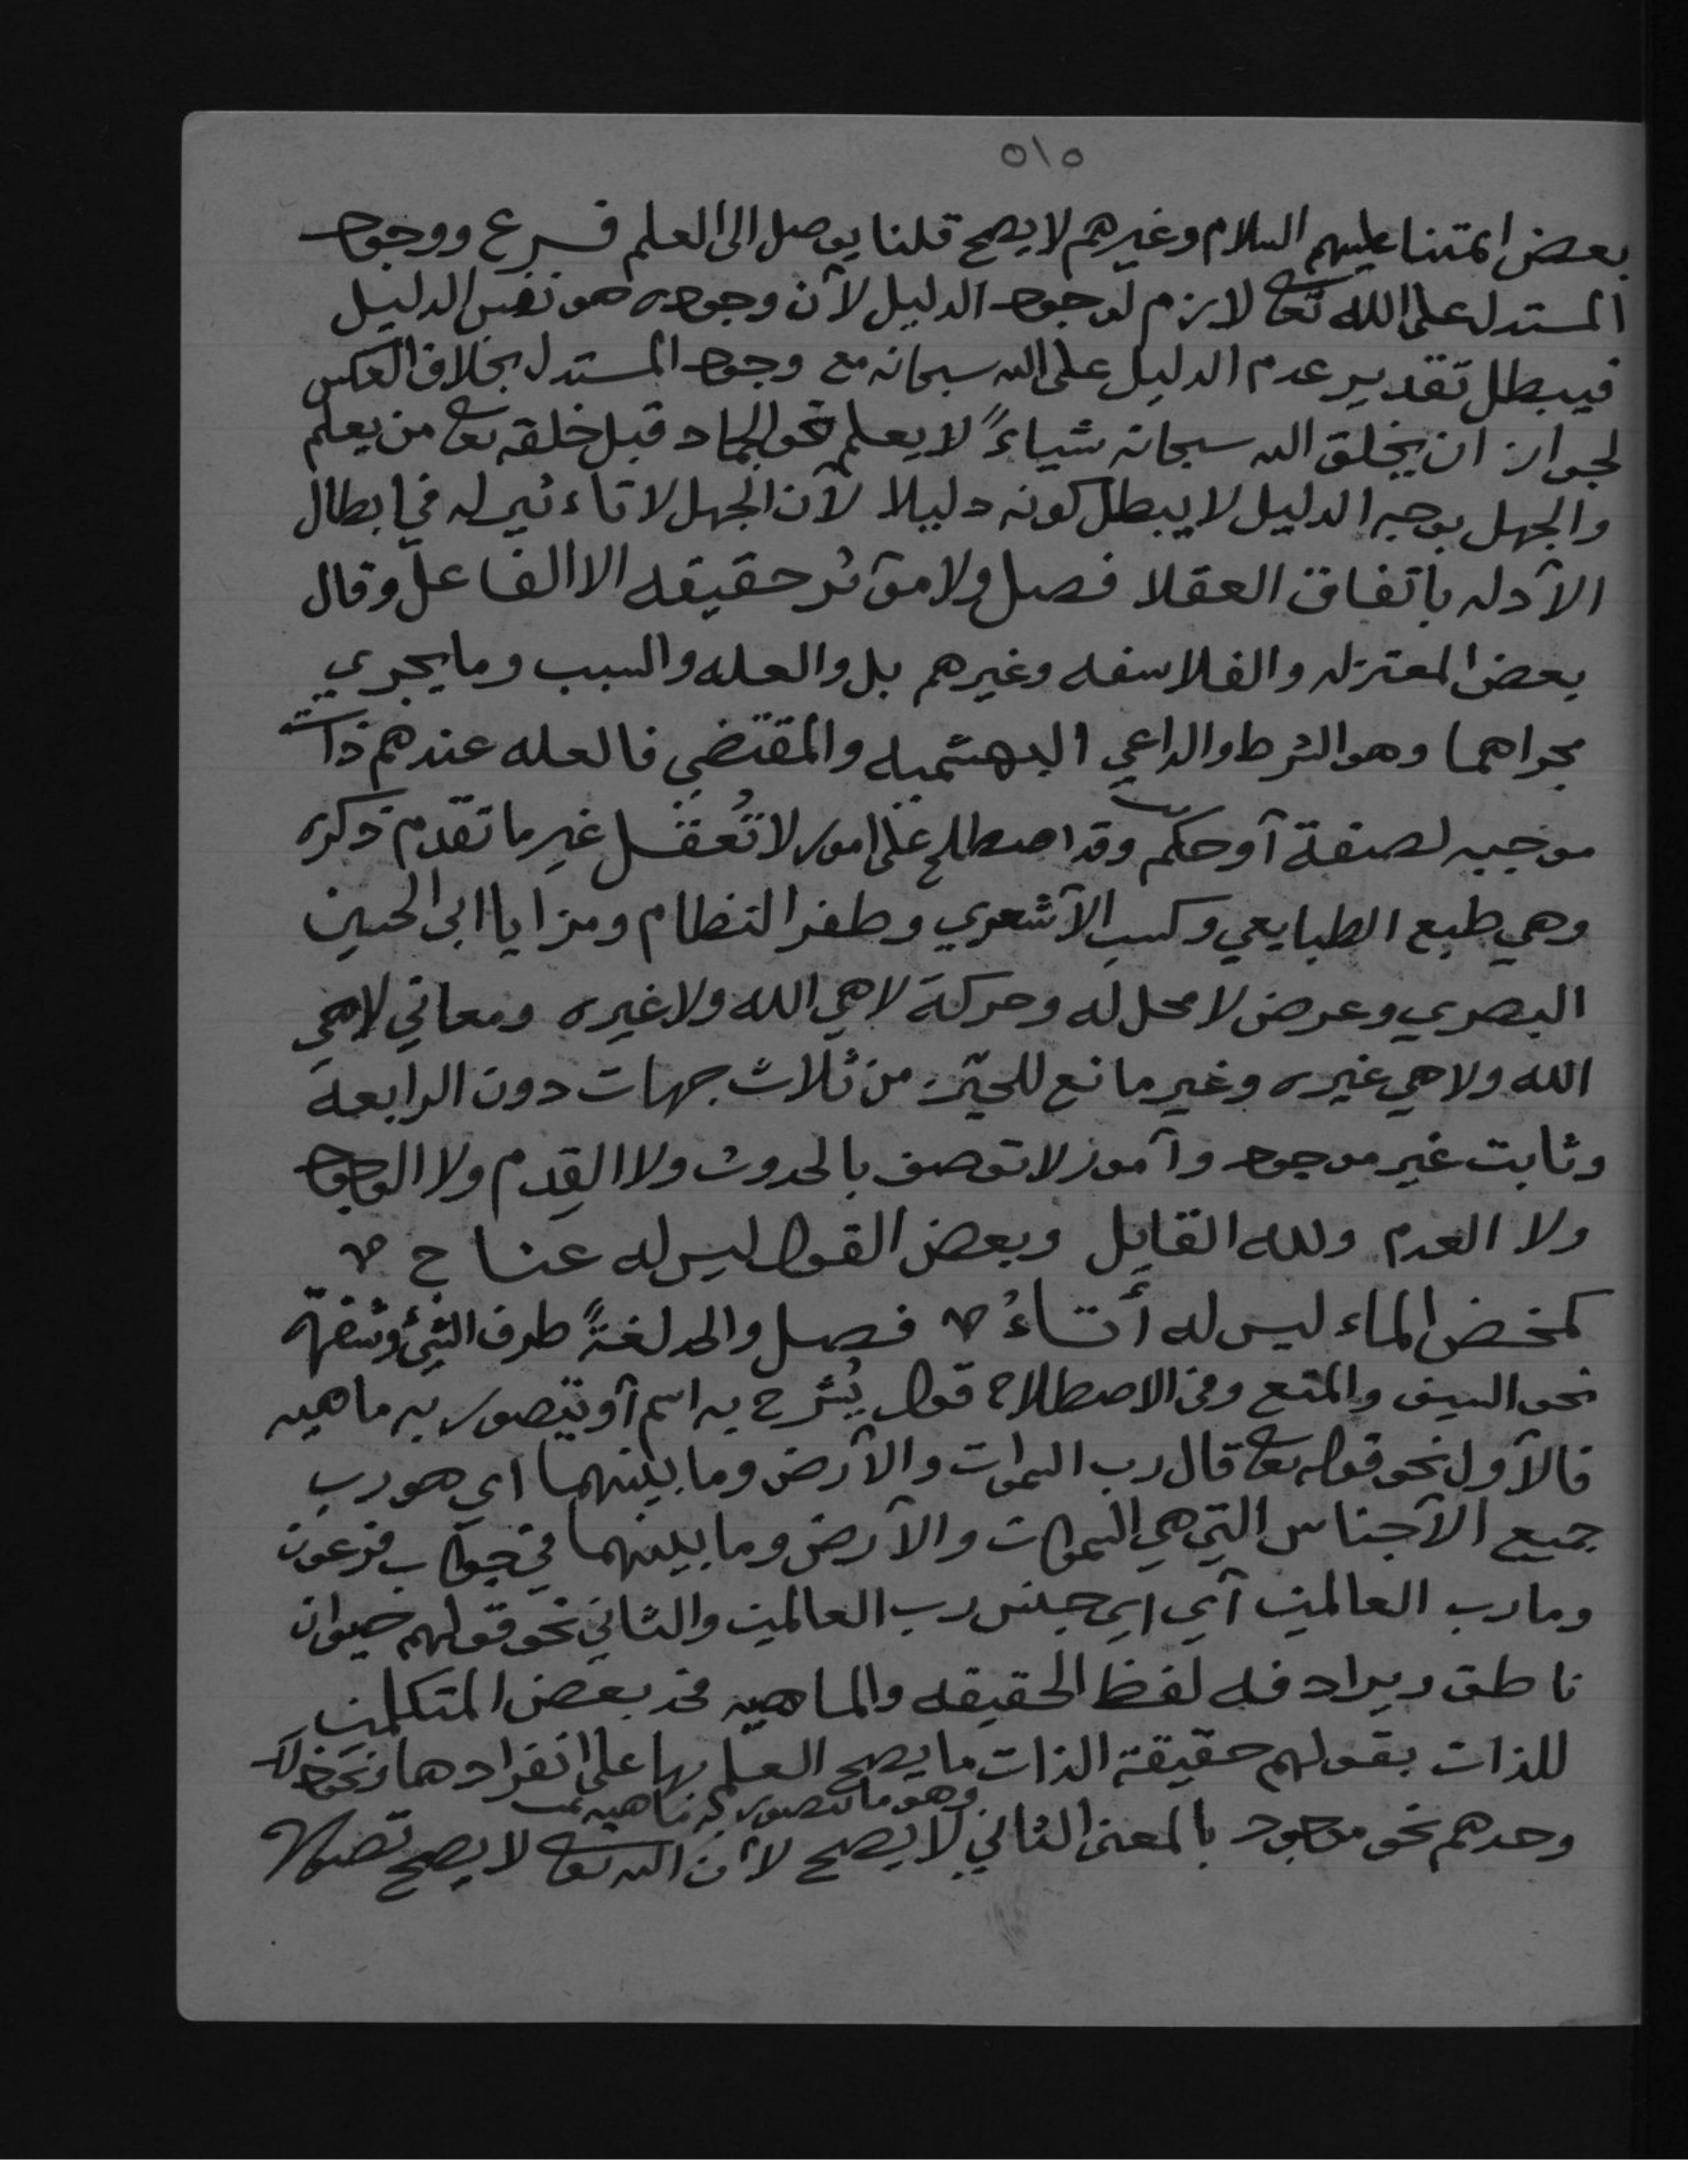 ٥١٥
بعض ائمتنا عليهم السلام وغيرهم لا يصح قلنا يوصل الى العلم فرع ووجود
المستدل على الله تعا لازم لوجود الدليل لأن وجوده هو نفس الدليل
فيبطل تقدير عدم الدليل على الله سبحانه مع وجود المستدل بخلاف العكس
لجواز ان يخلق الله سبحانه شياءً لا يعلم نحو الجماد قبل خلقه تعا من يعلم
والجهل بوجه الدليل لا يبطل كونه دليلا لأن الجهل لا تاءثير له في ابطال
الأدله بأتفاق العقلا فصل ولا مؤثر حقيقه الا الفاعل وقال
بعض المعتزله والفلاسفه وغيرهم بل والعله والسبب وما يجري
مجراهما وهو الشرط والداعي البهشميه والمقتضي فالعله عندهم ذات
موجبه لصفة أو حكم وقد اصطلح على امور لا تُعقل غير ما تقدم ذكره
وهي طبع الطبايعي وكسب الأشعري وطفر النظام ومزايا ابى الحسين
البصري وعرض لا محل له وحركة لا هي الله ولا غيره ومعاني لا هي
الله ولا هي غيره وغير مانع للحيّز من ثلاث جهات دون الرابعه
وثابت غير موجود وأموز لا توصف بالحدوث ولا القِدم ولا الوجود
ولا العدم ولله القايل وبعض القول ليس له عناج
كمخض الماء ليس له أتاءُ فصل والحد لغةً طرف الشئ وشفرة
نحو السيف والمنع وفى الاصطلاح قول يُشرح به اسم أو يتصور به ماهيه
فالأول نحو قوله تعا قال رب السموات والأرض وما بينهما اي هو رب
جميع الأجناس التي هي السموات والأرض وما بينهما في جواب فرعون
وما رب العالمين أي اي جنس رب العالمين والثاني نحو قولهم حيوان
ناطق ويرادفه لفظ الحقيقه والماهيه فحد بعض المتكلمين
للذات بقولهم حقيقة الذات ما يصح العلم بها على انفرادها ونحو ذلك
وهو ما يتصور به ماهيه
وحدهم نحو موجود بالمعنى الثاني لا يصح لأن الله تعا لا يصح تصوره